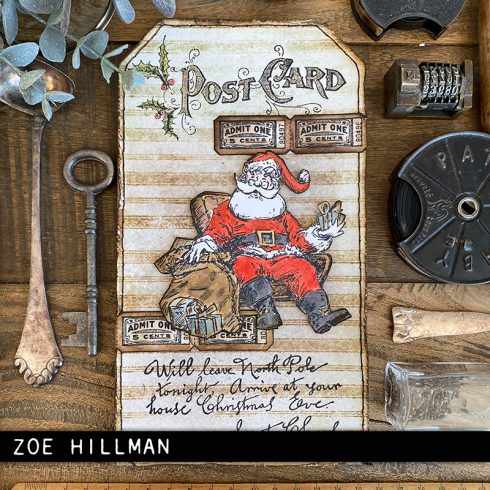 POST CARD
ADMIT ONE
5 CENTS
ADMIT ONE
5 CENTS
ADMIT ONE
5 CENTS
ADMIT ONE
5 CENTS
Will leave North Pole
tonight. Arrive at your
house Christmas Eve.
PAT
ZOE HILLMAN